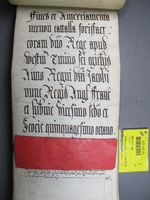 Fines et Amerciamenta
necnon catalla forisfact
coram dno Rege apud
Westm Termino sci Michis
Anno Regni dni Jacobi
nunc Regis Angl Franc
et Hibnie vicesimo sc̃do et
Scocie quinquagesimo octavo